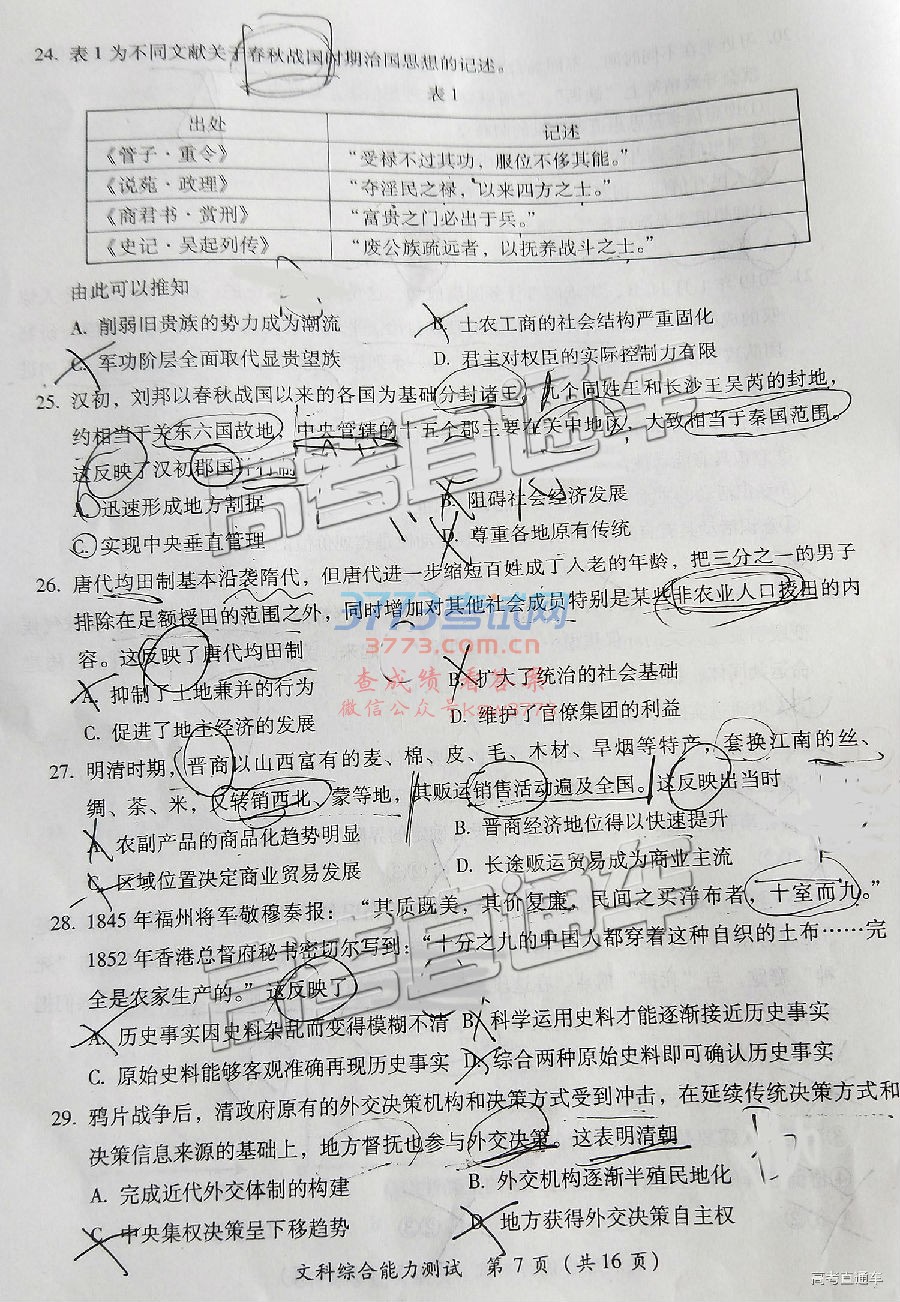 24. 表 1 为不同文献关于春秋战国时期治国思想的记述。
表 1
出处 记述
《管子·重令》 “受禄不过其功，服位不侈其能。”
《说苑·政理》 “夺淫民之禄，以来四方之士。”
《商君书·赏刑》 “富贵之门必出于兵。”
《史记·吴起列传》 “废公族疏远者，以抚养战斗之士。”
由此可以推知
A. 削弱旧贵族的势力成为潮流 B. 士农工商的社会结构严重固化
C. 军功阶层全面取代显贵望族 D. 君主对权臣的实际控制力有限
25. 汉初，刘邦以春秋战国以来的各国为基础分封诸王，九个同姓王和长沙王吴芮的封地，
约相当于关东六国故地，中央管辖的十五个郡主要在关中地区，大致相当于秦国范围。
这反映了汉初郡国并行制
A. 迅速形成地方割据 B. 阻碍社会经济发展
C. 实现中央垂直管理 D. 尊重各地原有传统
26. 唐代均田制基本沿袭隋代，但唐代进一步缩短百姓成丁入老的年龄，把三分之一的男子
排除在足额授田的范围之外，同时增加对其他社会成员特别是某些非农业人口授田的内
容。这反映了唐代均田制
A. 抑制了土地兼并的行为 B. 扩大了统治的社会基础
C. 促进了地主经济的发展 D. 维护了官僚集团的利益
27. 明清时期，晋商以山西富有的麦、棉、皮、毛、木材、旱烟等特产，套换江南的丝、
绸、茶、米，又转销西北、蒙等地，其贩运销售活动遍及全国。这反映出当时
A. 农副产品的商品化趋势明显 B. 晋商经济地位得以快速提升
C. 区域位置决定商业贸易发展 D. 长途贩运贸易成为商业主流
28. 1845 年福州将军敬穆奏报：“其质既美，其价复廉，民间之买洋布者，十室而九。”
1852 年香港总督府秘书密切尔写到：“十分之九的中国人都穿着这种自织的土布……完
全是农家生产的。”这反映了
A. 历史事实因史料杂乱而变得模糊不清 B. 科学运用史料才能逐渐接近历史事实
C. 原始史料能够客观准确再现历史事实 D. 综合两种原始史料即可确认历史事实
29. 鸦片战争后，清政府原有的外交决策机构和决策方式受到冲击，在延续传统决策方式和
决策信息来源的基础上，地方督抚也参与外交决策。这表明清朝
A. 完成近代外交体制的构建 B. 外交机构逐渐半殖民地化
C. 中央集权决策呈下移趋势 D. 地方获得外交决策自主权
文科综合能力测试 第 7 页（共 16 页）
高考直通车
高考直通车
3773考试网
3773.com.cn
查成绩 看答案
高考直通车